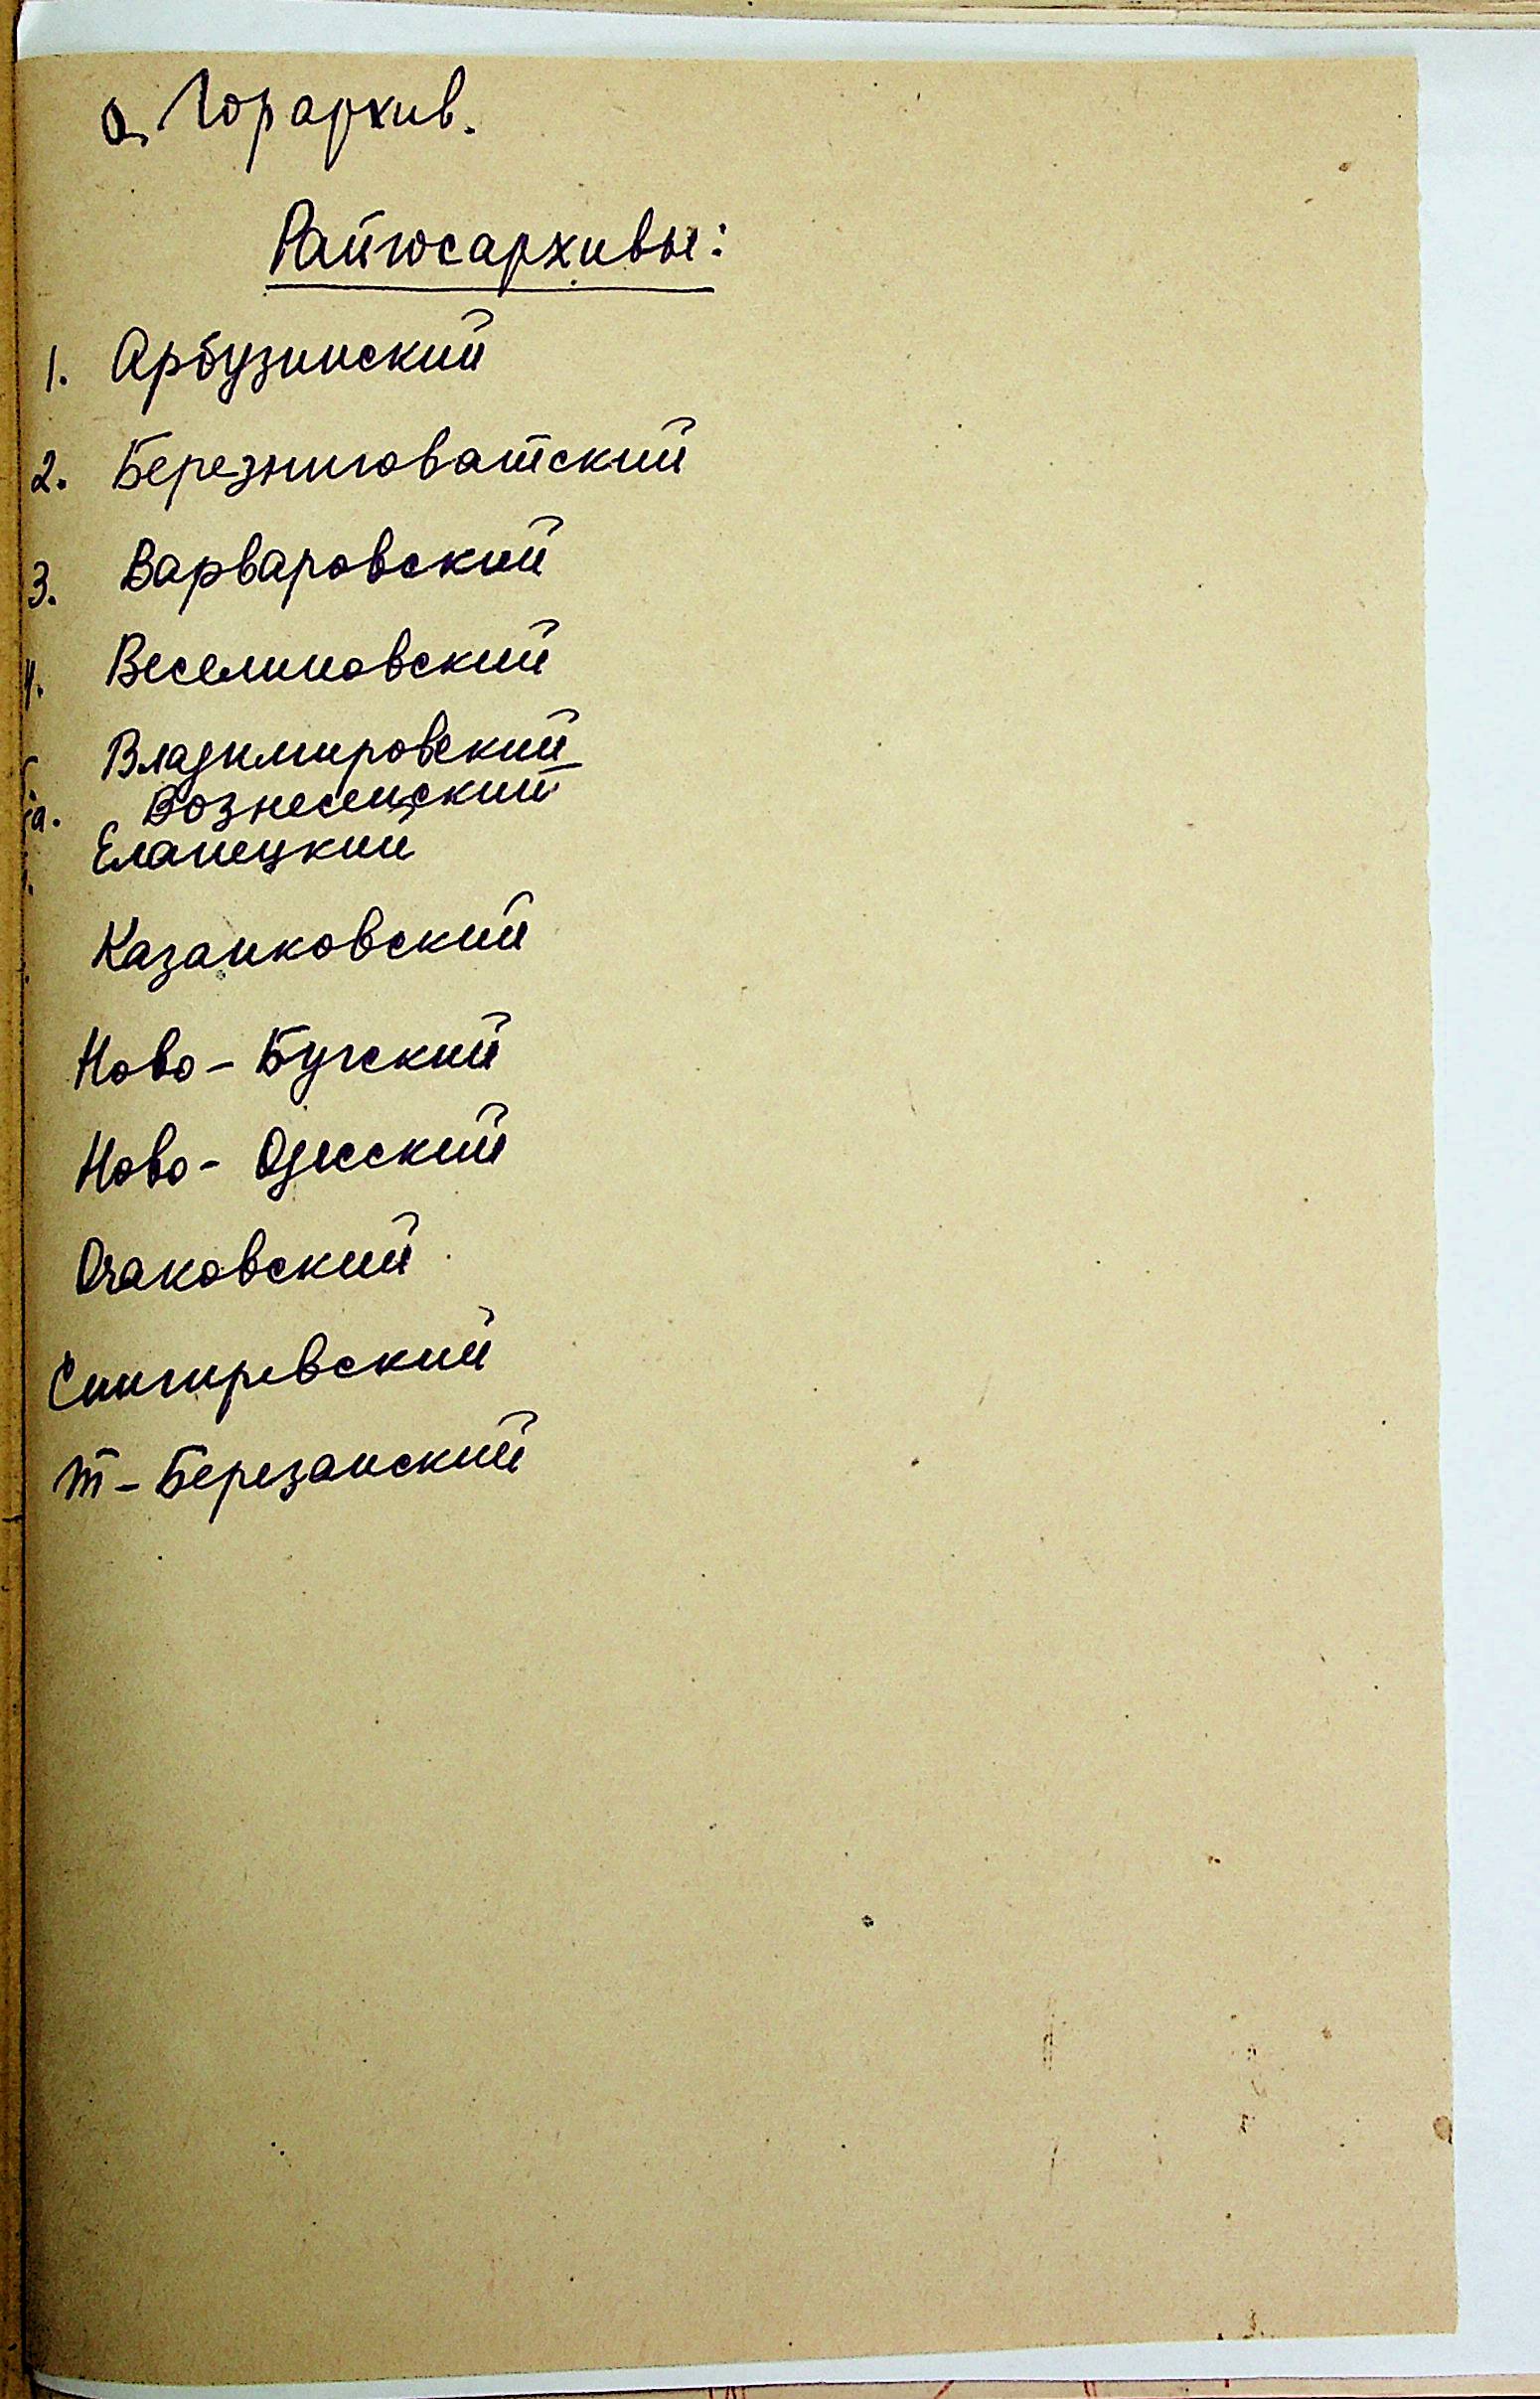 а. Горархив.
Райгосархивы:
1. Арбузинский
2. Березниговатский
3. Варваровский
4. Веселиновский
Владимировский
а. Вознесенский
Еланецкий
Казанковский
Ново-Бугский
Ново-Одесский
Очаковский
Снигиревский
Т-Березанский